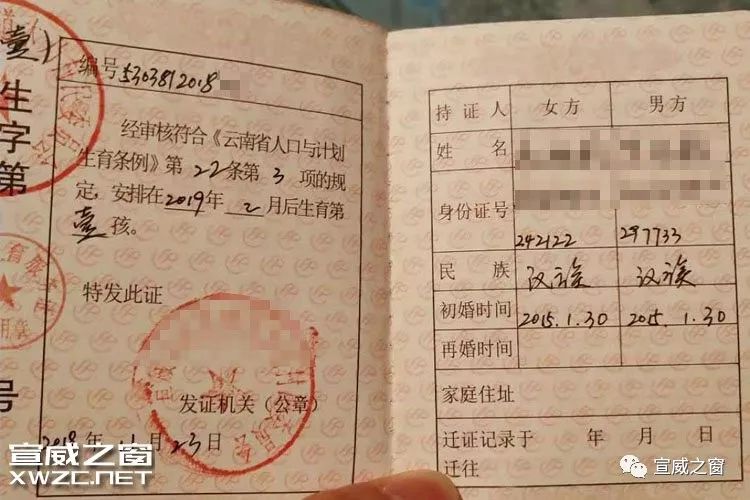 壹)
生
字
第
号
编号5303812018
经审核符合《云南省人口与计划
生育条例》第22条第3项的规
定，安排在2019年2月后生育第
壹孩。
特发此证
发证机关（公章）
2018年11月23日
持证人 女方 男方
姓名
身份证号
242122 297733
民族 汉族 汉族
初婚时间 2015.1.30 2015.1.30
再婚时间
家庭住址
迁证记录于 年 月 日
迁往
宣威之窗
XWZC.NET
宣威之窗